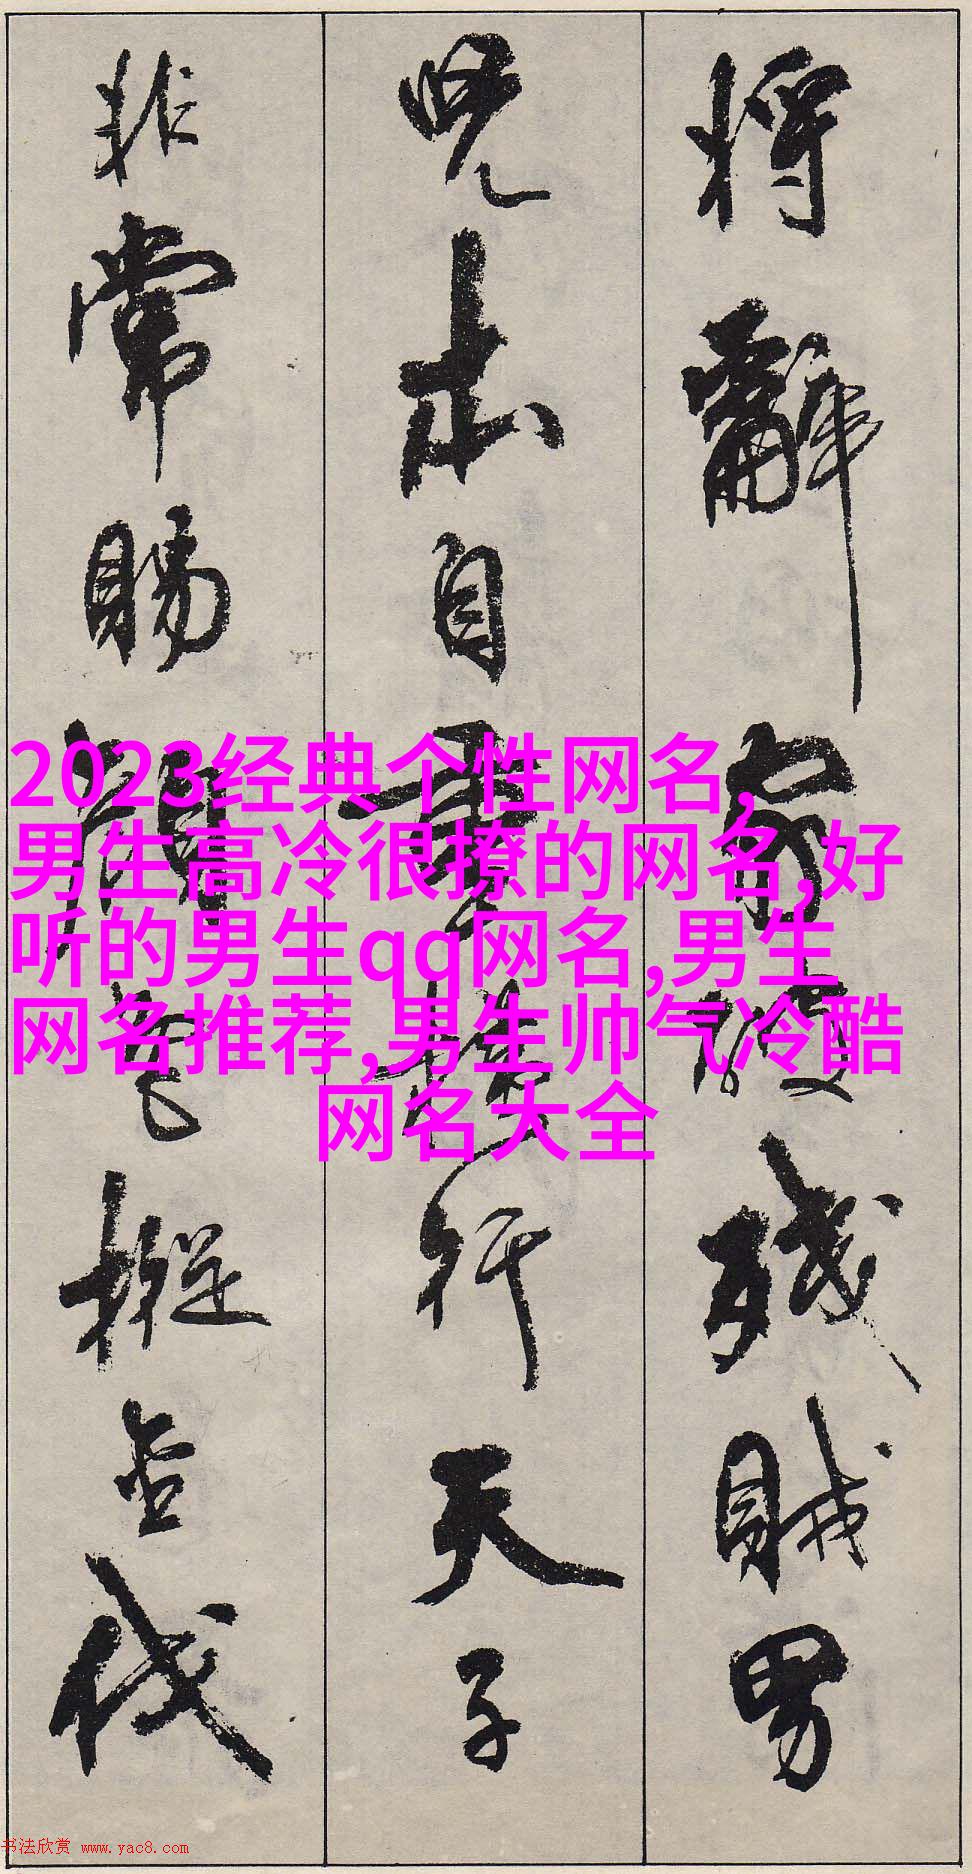 将辭家破残賊男
兒本自重横行天子
非常賜顔色摐金伐
2023经典个性网名,
男生高冷很撩的网名,好
听的男生qq网名,男生
网名推荐,男生帅气冷酷
网名大全
书法欣赏 www.yac8.com